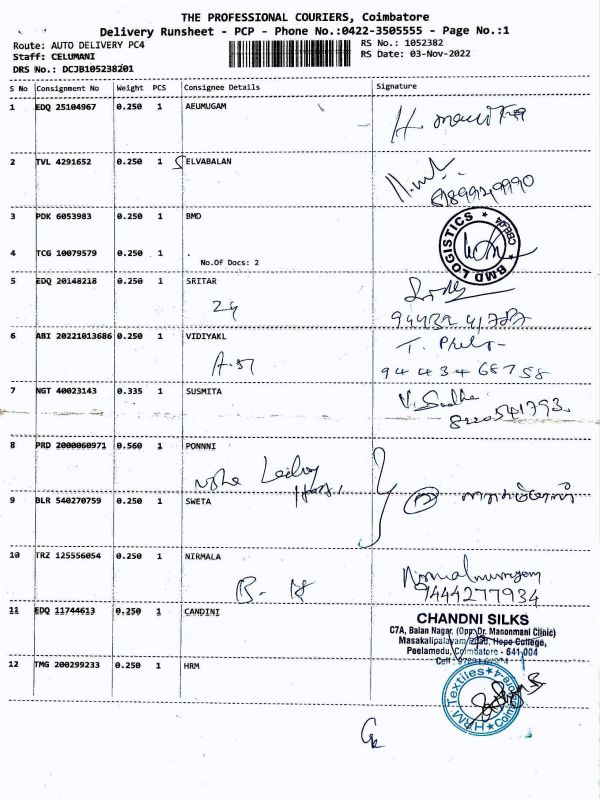 THE PROFESSIONAL COURIERS, Coimbatore
Delivery Runsheet - PCP - Phone No.:0422-3505555 - Page No.:1
Route: AUTO DELIVERY PC4
RS No.: 1052382
Staff: CELUMANI
RS Date: 03-Nov-2022
DRS No.: DCJB105238201
S No Consignment No Weight PCS Consignee Details Signature
1 EDQ 25104967 0.250 1 AEUMUGAM
2 TVL 4291652 0.250 1 SELVABALAN
3 PDK 6053983 0.250 1 BMD
BMD LOGISTICS
4 TCG 10079579 0.250 1 .
No.Of Docs: 2
5 EDQ 20148218 0.250 1 SRITAR
24
6 ABI 20221013686 0.250 1 VIDIYAKL
9443468758
7 NGT 40023143 0.335 1 SUSMITA
V. Sudha
8220541793
8 PRD 2000060971 0.560 1 PONNNI
9 BLR 540270759 0.250 1 SWETA
10 TRZ 125556054 0.250 1 NIRMALA
9444277934
11 EDQ 11744613 0.250 1 CANDINI
CHANDNI SILKS
C7A, Balan Nagar, (Opp. Dr. Manonmani Clinic)
Masakalipalayam Road, Hope College,
Peelamedu, Coimbatore - 641 004
Cell :
12 TMG 200299233 0.250 1 HRM
HRM Textiles